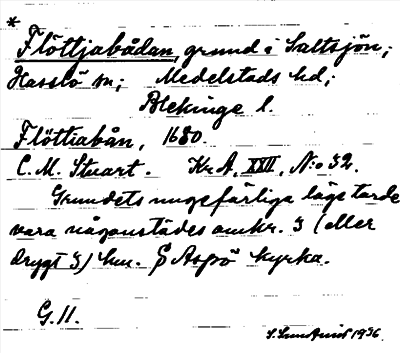 *
Flöttjabådan, grund i Saltsjön;
Hasslö sn; Medelstads hd;
Blekinge l.
Flöttiabån, 1680.
C. M. Stuart. Kr. A. XXII, N:o 32.
Grundets ungefärliga läge torde
vara någonstädes omkr. 3 (eller
drygt 3) km. S Aspö kyrka.
G. 11.
1936.